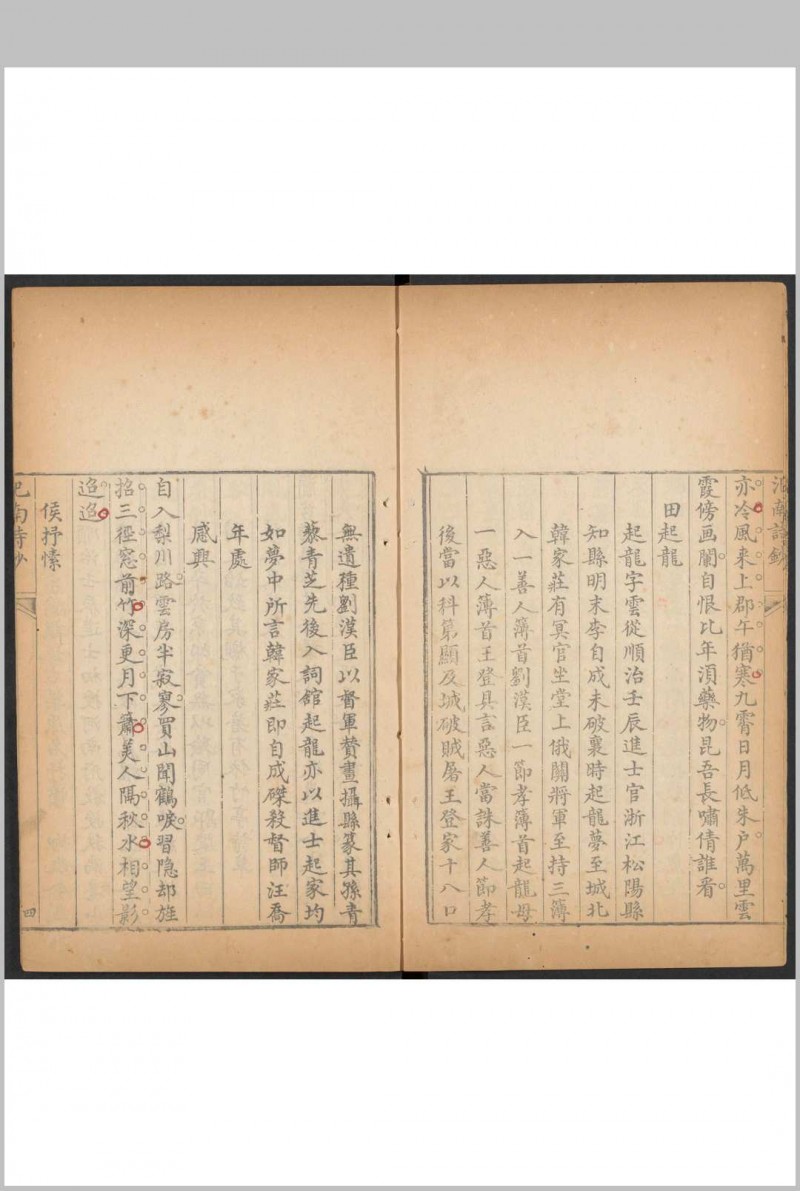 亦冷風来上郡午猶寒九霄日月低朱户萬里雲
霞傍画闌自恨比年湏藥物昆吾長嘯倩誰看
田起龍
起龍字雲從順治壬辰進士官浙江松陽縣
知縣明末李自成未破襄時起龍夢至城北
韓家莊有冥官坐堂上俄關將軍至持三簿
入一善人簿首劉漢臣一節孝簿首起龍母
一惡人簿首王登具言惡人當誅善人節孝
後當以科第顯及城破賊屠王登家十八口
無遺種劉漢臣以督軍贊畫攝縣篆其孫青
藜青芝先後入詞館起龍亦以進士起家均
如夢中所言韓家莊即自成磔殺督師汪喬
年處
感興
自入梨川路雲房半寂寥買山聞鶴唳習隐却旌
招三徑窓前竹深更月下簫美人隔秋水相望影
迢迢
侯抒愫
四